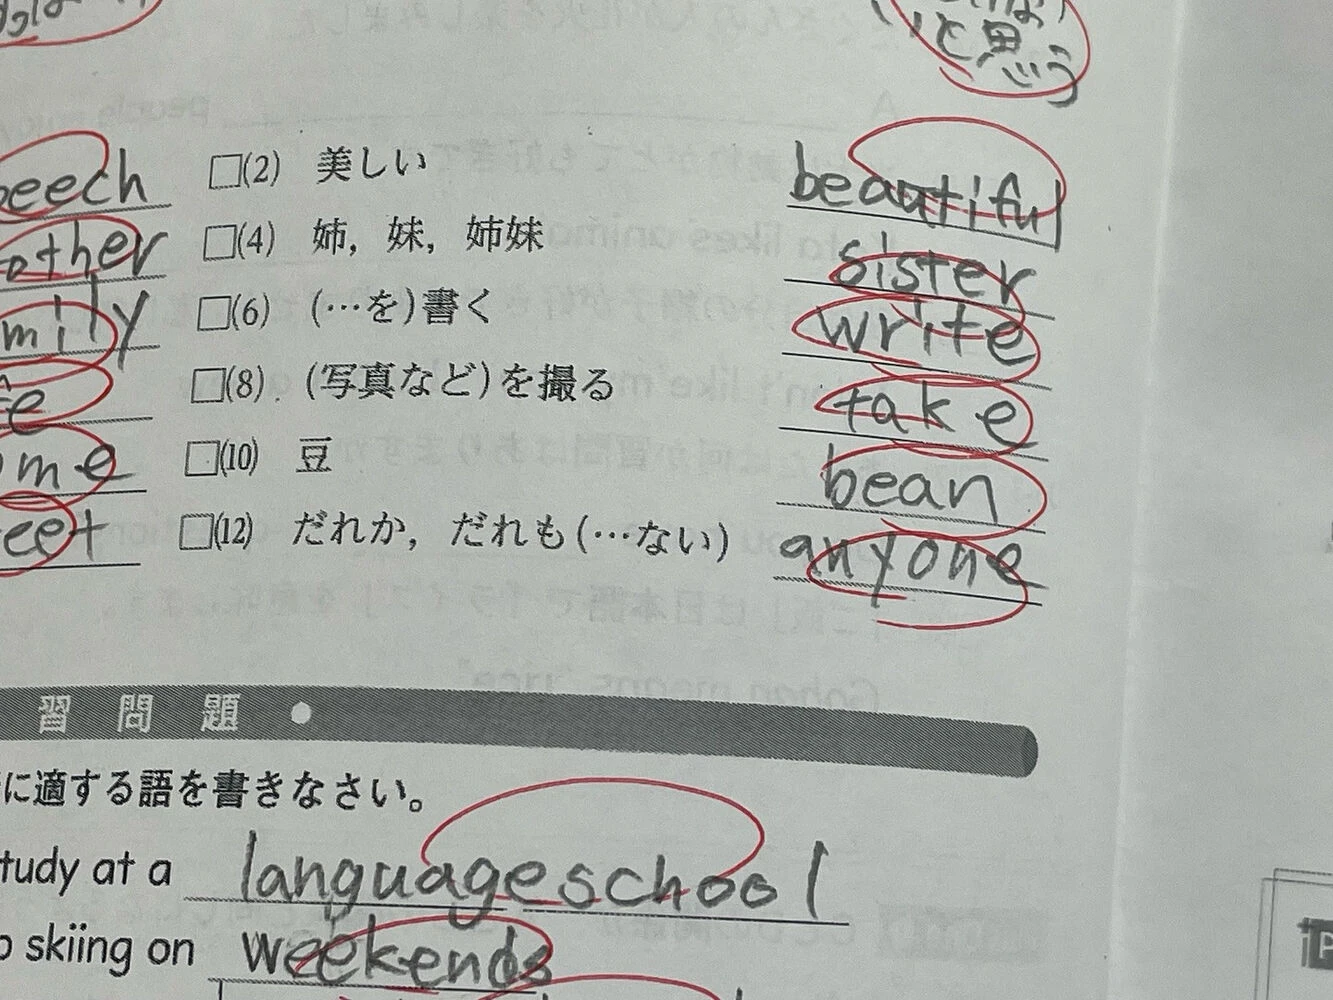 と思う
eech □(2) 美しい beautiful
other □(4) 姉，妹，姉妹 sister
mily □(6) (…を)書く write
e □(8) (写真など)を撮る take
me □(10) 豆 bean
eet □(12) だれか，だれも(…ない) anyone
習問題
に適する語を書きなさい。
tudy at a language school
o skiing on weekends